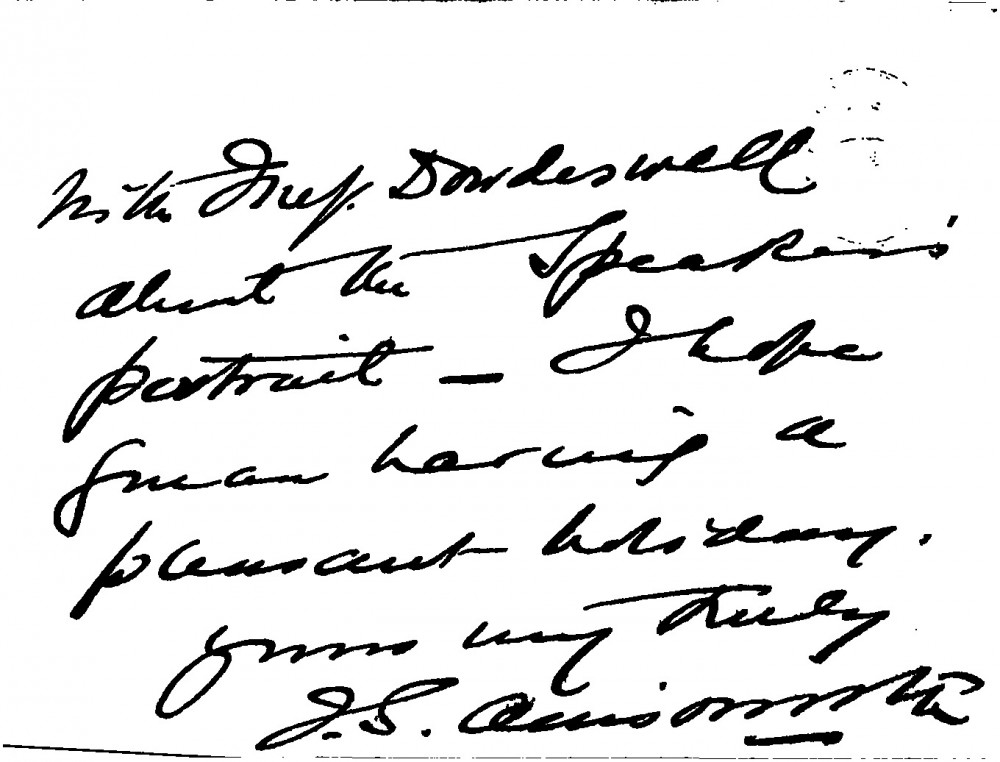 with Messrs. Dowdeswell
about the Speaker's
portrait — I hope
you are having a
pleasant holiday.
yours very truly
J.S. Ainsworth